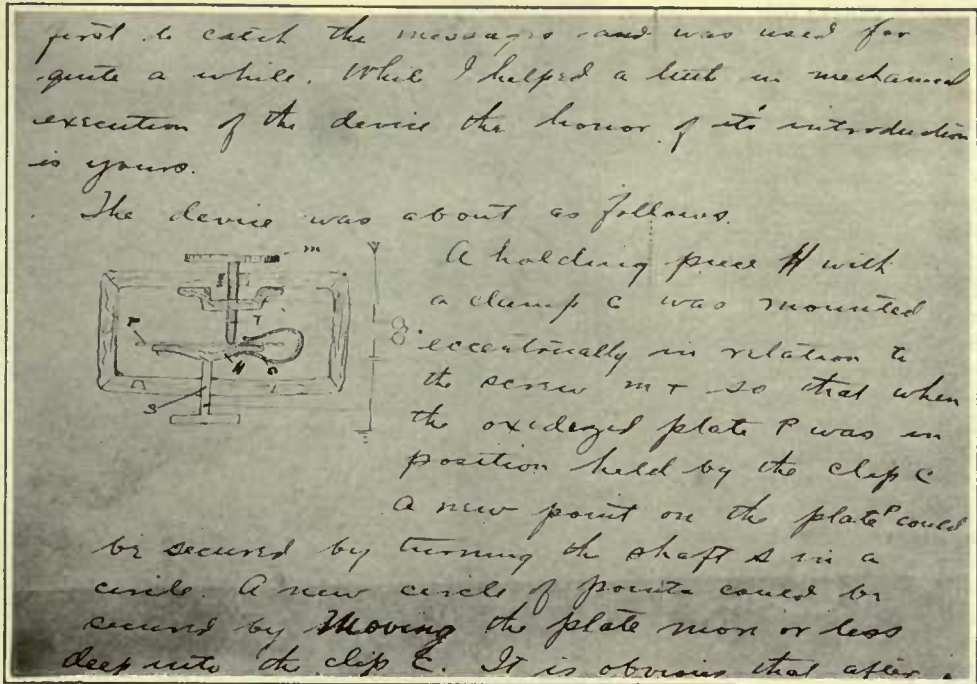 first to catch the messages and was used for
quite a while. While I helped a little in mechanical
execution of the device the honor of it's introduction
is yours.
The device was about as follows.
m
T
P
H C
S
A holding piece H with
a clamp C was mounted
eccentrically in relation to
the screw m T so that when
the oxidized plate P was in
position held by the clip C
A new point on the plate P could
be secured by turning the shaft S in a
circle. A new circle of points could be
secured by Moving the plate more or less
deep into the clip C. It is obvious that after